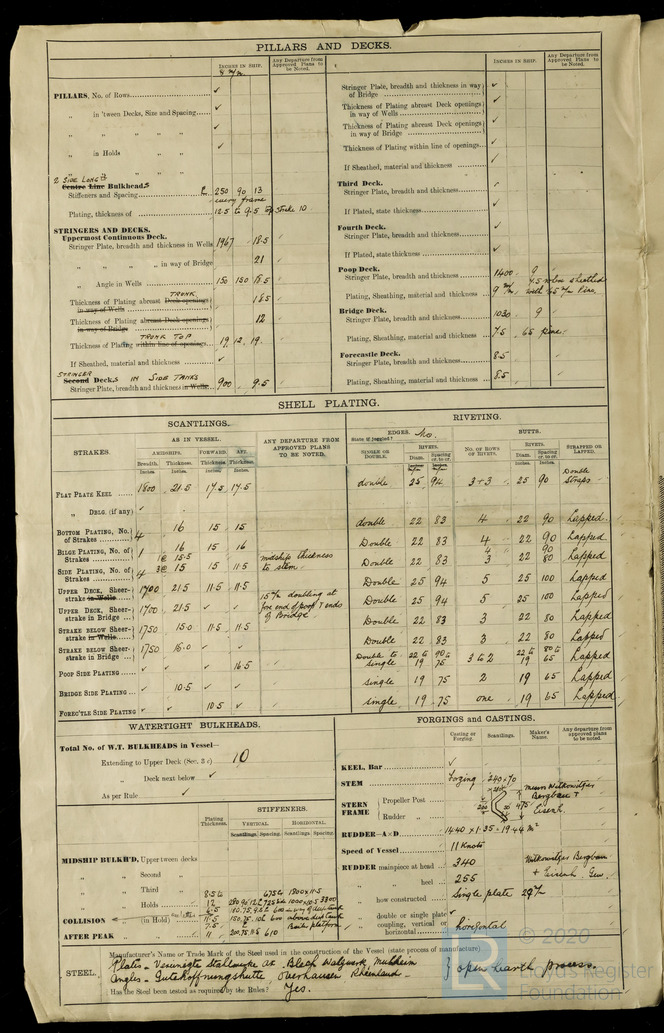 PILLARS AND DECKS.
INCHES IN SHIP.
Any Departure from Approved Plans to be Noted.
PILLARS, No. of Rows
„ in 'tween Decks, Size and Spacing
„ „ „ „
„ in Holds „ „
„ „ „ „
2 SIDE LONGL
Centre Line Bulkheads
Stiffeners and Spacing 250 90 13
every frame
Plating, thickness of 12.5 to 9.5 Top Strake 10
STRINGERS AND DECKS.
Uppermost Continuous Deck.
Stringer Plate, breadth and thickness in Wells 1967 18.5
„ „ „ „ in way of Bridge 21
„ Angle in Wells 150 150 18.5
TRUNK
Thickness of Plating abreast Deck openings in way of Wells 18.5
Thickness of Plating abreast Deck openings in way of Bridge 12
TRUNK TOP
Thickness of Plating within line of openings 19. 12. 19.
If Sheathed, material and thickness
STRINGER
Second Decks IN SIDE TANKS
Stringer Plate, breadth and thickness in Wells 900 9.5
INCHES IN SHIP.
Any Departure from Approved Plans to be Noted.
Stringer Plate, breadth and thickness in way of Bridge
Thickness of Plating abreast Deck openings in way of Wells
Thickness of Plating abreast Deck openings in way of Bridge
Thickness of Plating within line of openings
If Sheathed, material and thickness
Third Deck.
Stringer Plate, breadth and thickness
If Plated, state thickness
Fourth Deck.
Stringer Plate, breadth and thickness
If Plated, state thickness
Poop Deck.
Stringer Plate, breadth and thickness 1400 9
Plating, Sheathing, material and thickness 9 7.5 where sheathed with 65 m/m Pine
Bridge Deck.
Stringer Plate, breadth and thickness 1030 9
Plating, Sheathing, material and thickness 7.5 65 pine
Forecastle Deck.
Stringer Plate, breadth and thickness 8.5
Plating, Sheathing, material and thickness 8.5
SHELL PLATING.
SCANTLINGS.
RIVETING.
STRAKES.
AS IN VESSEL.
AMIDSHIPS.
FORWARD
AFT.
Breadth.
Thickness.
Thickness
Thickness.
Inches.
ANY DEPARTURE FROM APPROVED PLANS TO BE NOTED.
EDGES. No.
State if joggled?
SINGLE OR DOUBLE.
RIVETS.
Diam.
Spacing cr. to cr.
BUTTS.
No. OF ROWS OF RIVETS.
RIVETS.
Diam.
Spacing cr. to cr.
STRAPPED OR LAPPED.
FLAT PLATE KEEL 1800 21.5 17.5 17.5 double 25 94 3+3 25 90 Double Straps
„ DBLG. (if any)
BOTTOM PLATING, No. of Strakes 4 16 15 15 double 22 83 4 22 90 Lapped
BILGE PLATING, No. of Strakes 1 16 15 16 Double 22 83 4 22 90 Lapped
SIDE PLATING, No. of Strakes 4 1@ 15.5 3@ 15 15 11.5 midships thickness to stem Double 22 83 4 3 22 90 80 Lapped
UPPER DECK, Sheerstrake in Wells 1700 21.5 11.5 11.5 15 m/m doubling at fore end of poop & ends of Bridge Double 25 94 5 25 100 Lapped
UPPER DECK, Sheerstrake in Bridge 1700 21.5 Double 25 94 5 25 100 Lapped
STRAKE BELOW Sheerstrake in Wells 1750 15.0 11.5 11.5 Double 22 83 3 22 80 Lapped
STRAKE BELOW Sheerstrake in Bridge 1750 16.0 Double 22 83 3 22 80 Lapped
POOP SIDE PLATING 16.5 Double to single 22 to 19 90 to 75 3 to 2 22 to 19 80 to 65 Lapped
BRIDGE SIDE PLATING 10.5 single 19 75 2 19 65 Lapped
FORE'C'TLE SIDE PLATING 10.5 single 19 75 one 19 65 Lapped
WATERTIGHT BULKHEADS.
Total No. of W.T. BULKHEADS in Vessel—
Extending to Upper Deck (Sec. 3 c) 10
„ Deck next below
As per Rule
Plating Thickness.
STIFFENERS.
VERTICAL
HORIZONTAL.
Scantlings.
Spacing.
Scantlings.
Spacing.
MIDSHIP BULKH'D, Upper tween decks
„ „ Second „
„ „ Third „
„ „ Holds
COLLISION „ (in Hold)
AFTER PEAK „ 11 610
FORGINGS and CASTINGS.
Casting or Forging.
Scantlings.
Maker's Name.
Any departure from approved plans to be noted
KEEL, Bar
STEM Forging 240 × 70
STERN FRAME
Propeller Post
Rudder „
Messrs Witkowitzer Bergbau & Eisenh.
RUDDER—A×D 1440 × 1.35 = 1944 m²
Speed of Vessel 11 Knots
RUDDER mainpiece at head 340
„ „ heel 255
Witkowitzer Bergbau + Eisenh. Gew.
„ how constructed Single plate
„ double or single plate
„ coupling, vertical or horizontal horizontal
STEEL.
Manufacturer's Name or Trade Mark of the Steel used in the construction of the Vessel (state process of manufacture)
Plates - Vereinigte Stahlwerke A.G. Blech Walzwerk Mülheim
Angles - Gutehoffnungshütte, Oberhausen Rheinland
} open hearth process.
Has the Steel been tested as required by the Rules? Yes.
© 2020
LR
Lloyd's Register
Foundation